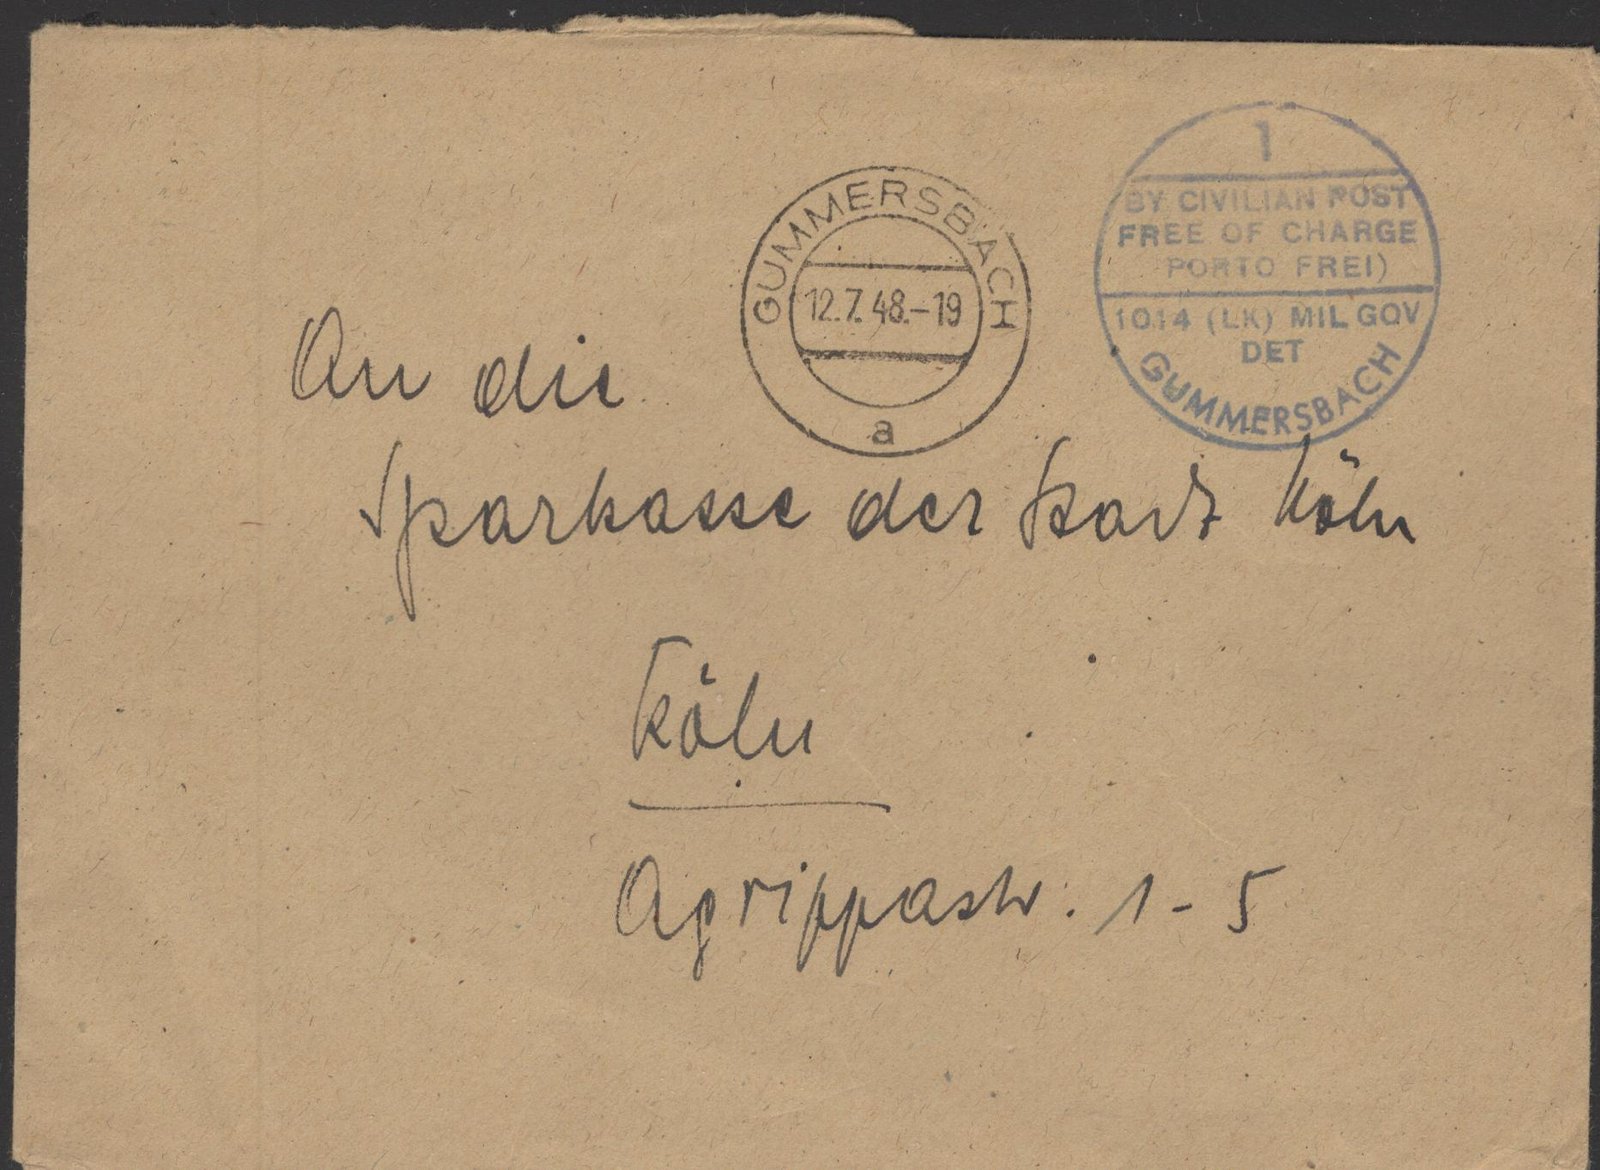 GUMMERSBACH
12.7.48.-19
a
1
BY CIVILIAN POST
FREE OF CHARGE
PORTO FREI)
1014 (LK) MIL GOV
DET
GUMMERSBACH
An die
Sparkasse der Stadt Köln
Köln
Agrippastr. 1-5